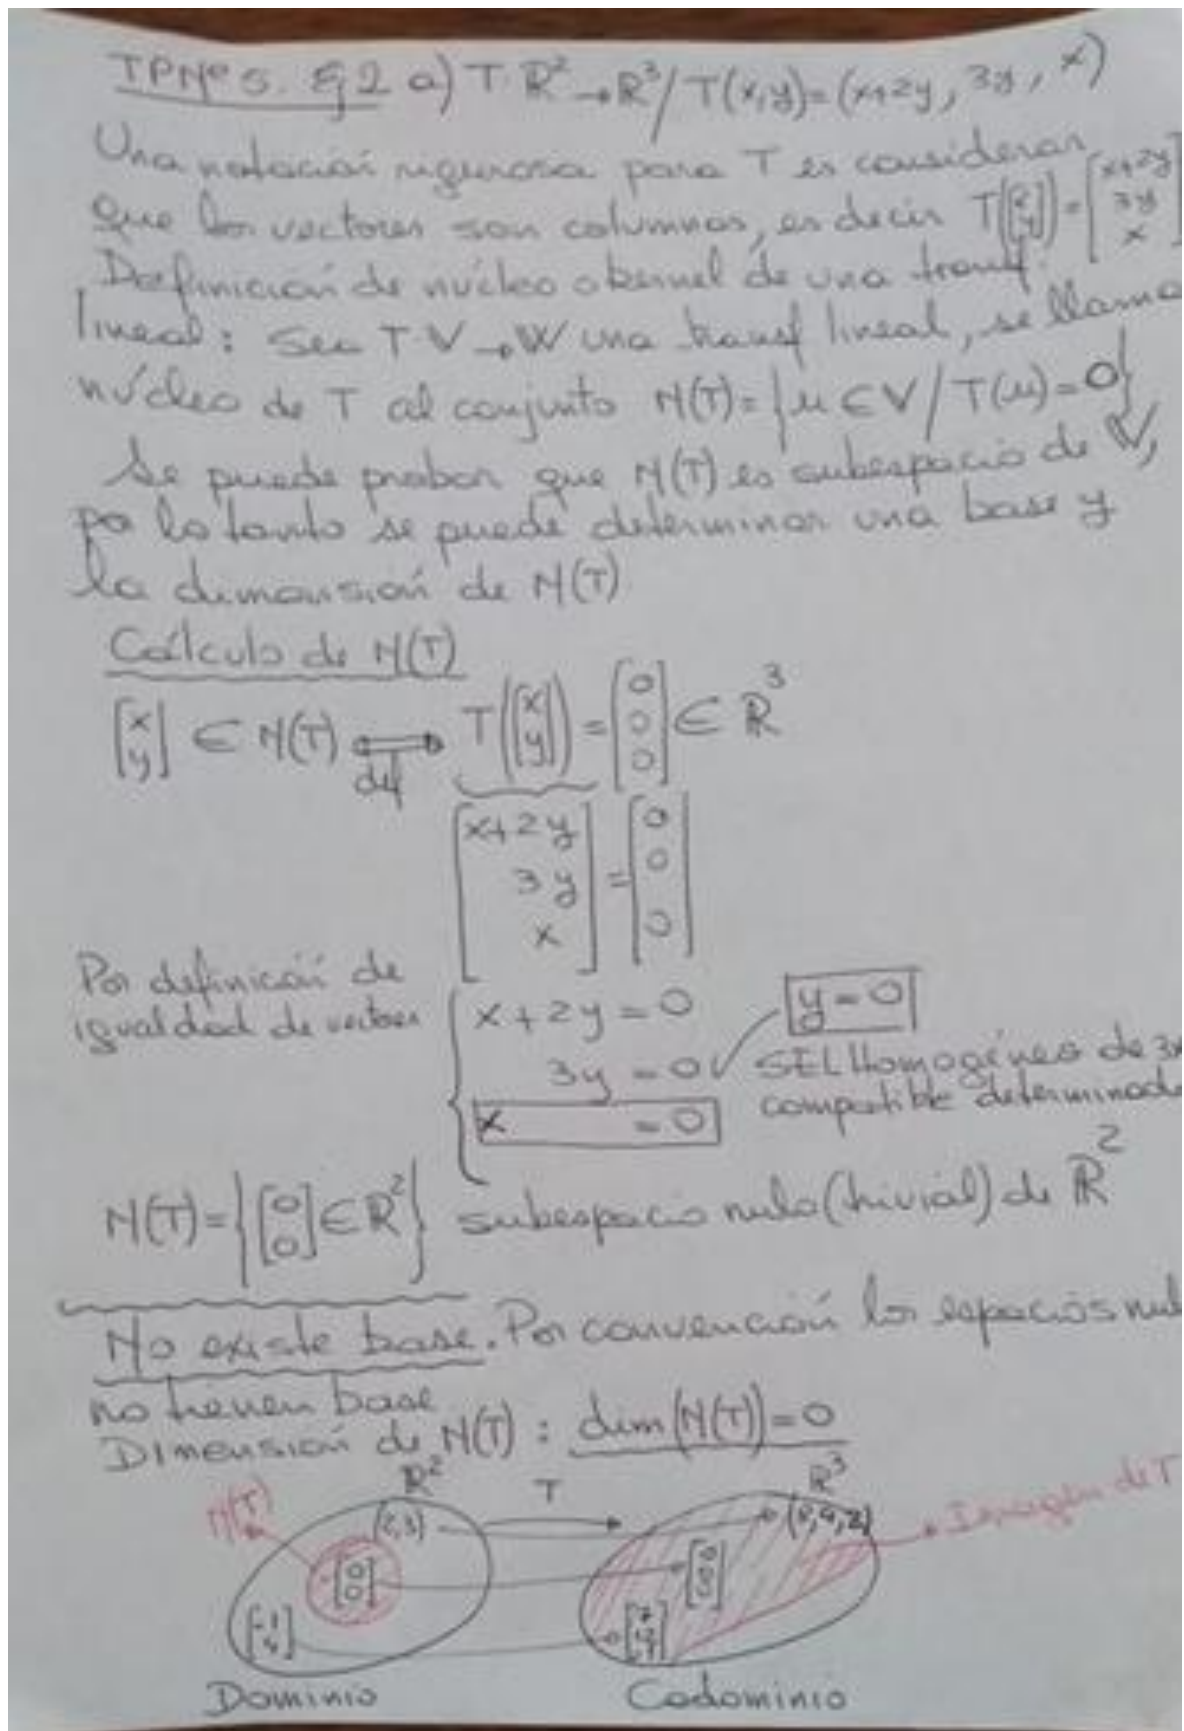 TPNº 5. Ej 2 a) T: R² → R³ / T(x,y) = (x+2y, 3y, x)
Una notación rigurosa para T es considerar
que los vectores son columnas, es decir T([x y]) = [x+2y 3y x]
Definición de núcleo o kernel de una transf.
lineal: Sea T: V → W una transf lineal, se llama
núcleo de T al conjunto N(T) = {u ∈ V / T(u) = 0}
Se puede probar que N(T) es subespacio de V,
po lo tanto se puede determinar una base y
la dimensión de N(T)
Cálculo de N(T)
[x y] ∈ N(T) ⟺ def T([x y]) = [0 0 0] ∈ R³
[x+2y 3y x] = [0 0 0]
Por definición de
igualdad de vectores
x + 2y = 0
y = 0
3y = 0
x = 0
SEL Homogéneo de 3x
compatible determinado
N(T) = {[0 0] ∈ R²} subespacio nulo (trivial) de R²
No existe base. Por convención los espacios nul
no tienen base
Dimensión de N(T): dim(N(T)) = 0
N(T) R² T R³
(2,3) (8,9,2) Imagen de T
[0 0] [0 0 0]
[-1 4] [7 12 -1]
Dominio Codominio